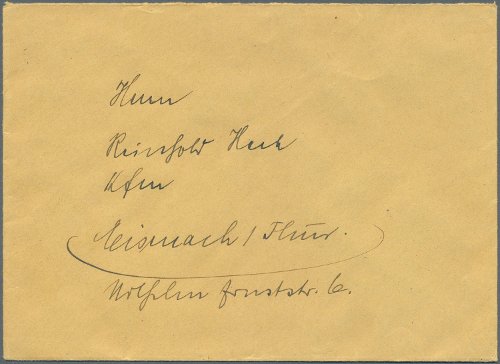 Herrn
Reinhold Heck
Kfm
Eisenach / Thür.
Wilhelm Ernststr. 6.